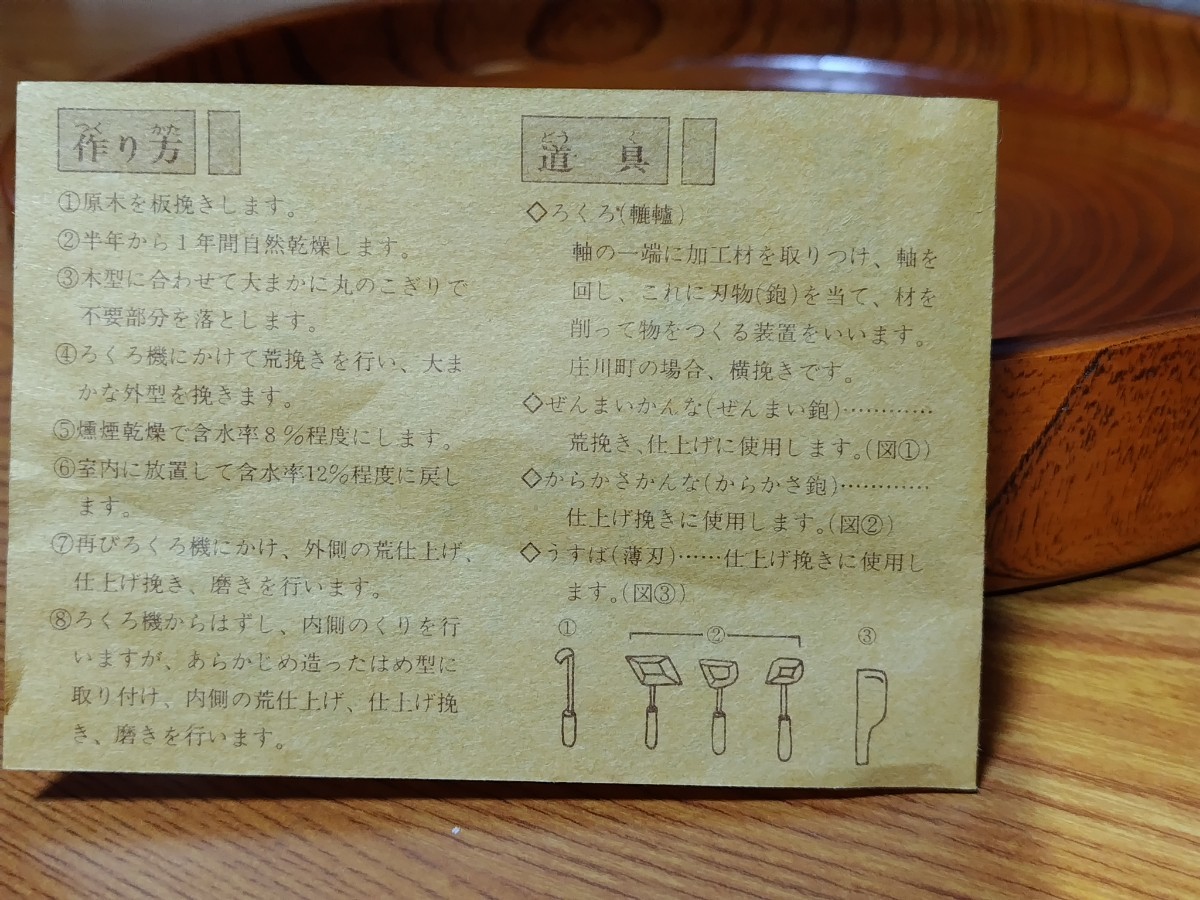 作り方
つく かた
①原木を板挽きします。
②半年から1年間自然乾燥します。
③木型に合わせて大まかに丸のこぎりで
不要部分を落とします。
④ろくろ機にかけて荒挽きを行い、大ま
かな外型を挽きます。
⑤燻煙乾燥で含水率8%程度にします。
⑥室内に放置して含水率12%程度に戻し
ます。
⑦再びろくろ機にかけ、外側の荒仕上げ、
仕上げ挽き、磨きを行います。
⑧ろくろ機からはずし、内側のくりを行
いますが、あらかじめ造ったはめ型に
取り付け、内側の荒仕上げ、仕上げ挽
き、磨きを行います。
道具
どう ぐ
◇ろくろ(轆轤)
軸の一端に加工材を取りつけ、軸を
回し、これに刃物(鉋)を当て、材を
削って物をつくる装置をいいます。
庄川町の場合、横挽きです。
◇ぜんまいかんな(ぜんまい鉋)…………
荒挽き、仕上げに使用します。(図①)
◇からかさかんな(からかさ鉋)…………
仕上げ挽きに使用します。(図②)
◇うすば(薄刃)……仕上げ挽きに使用し
ます。(図③)
① ② ③